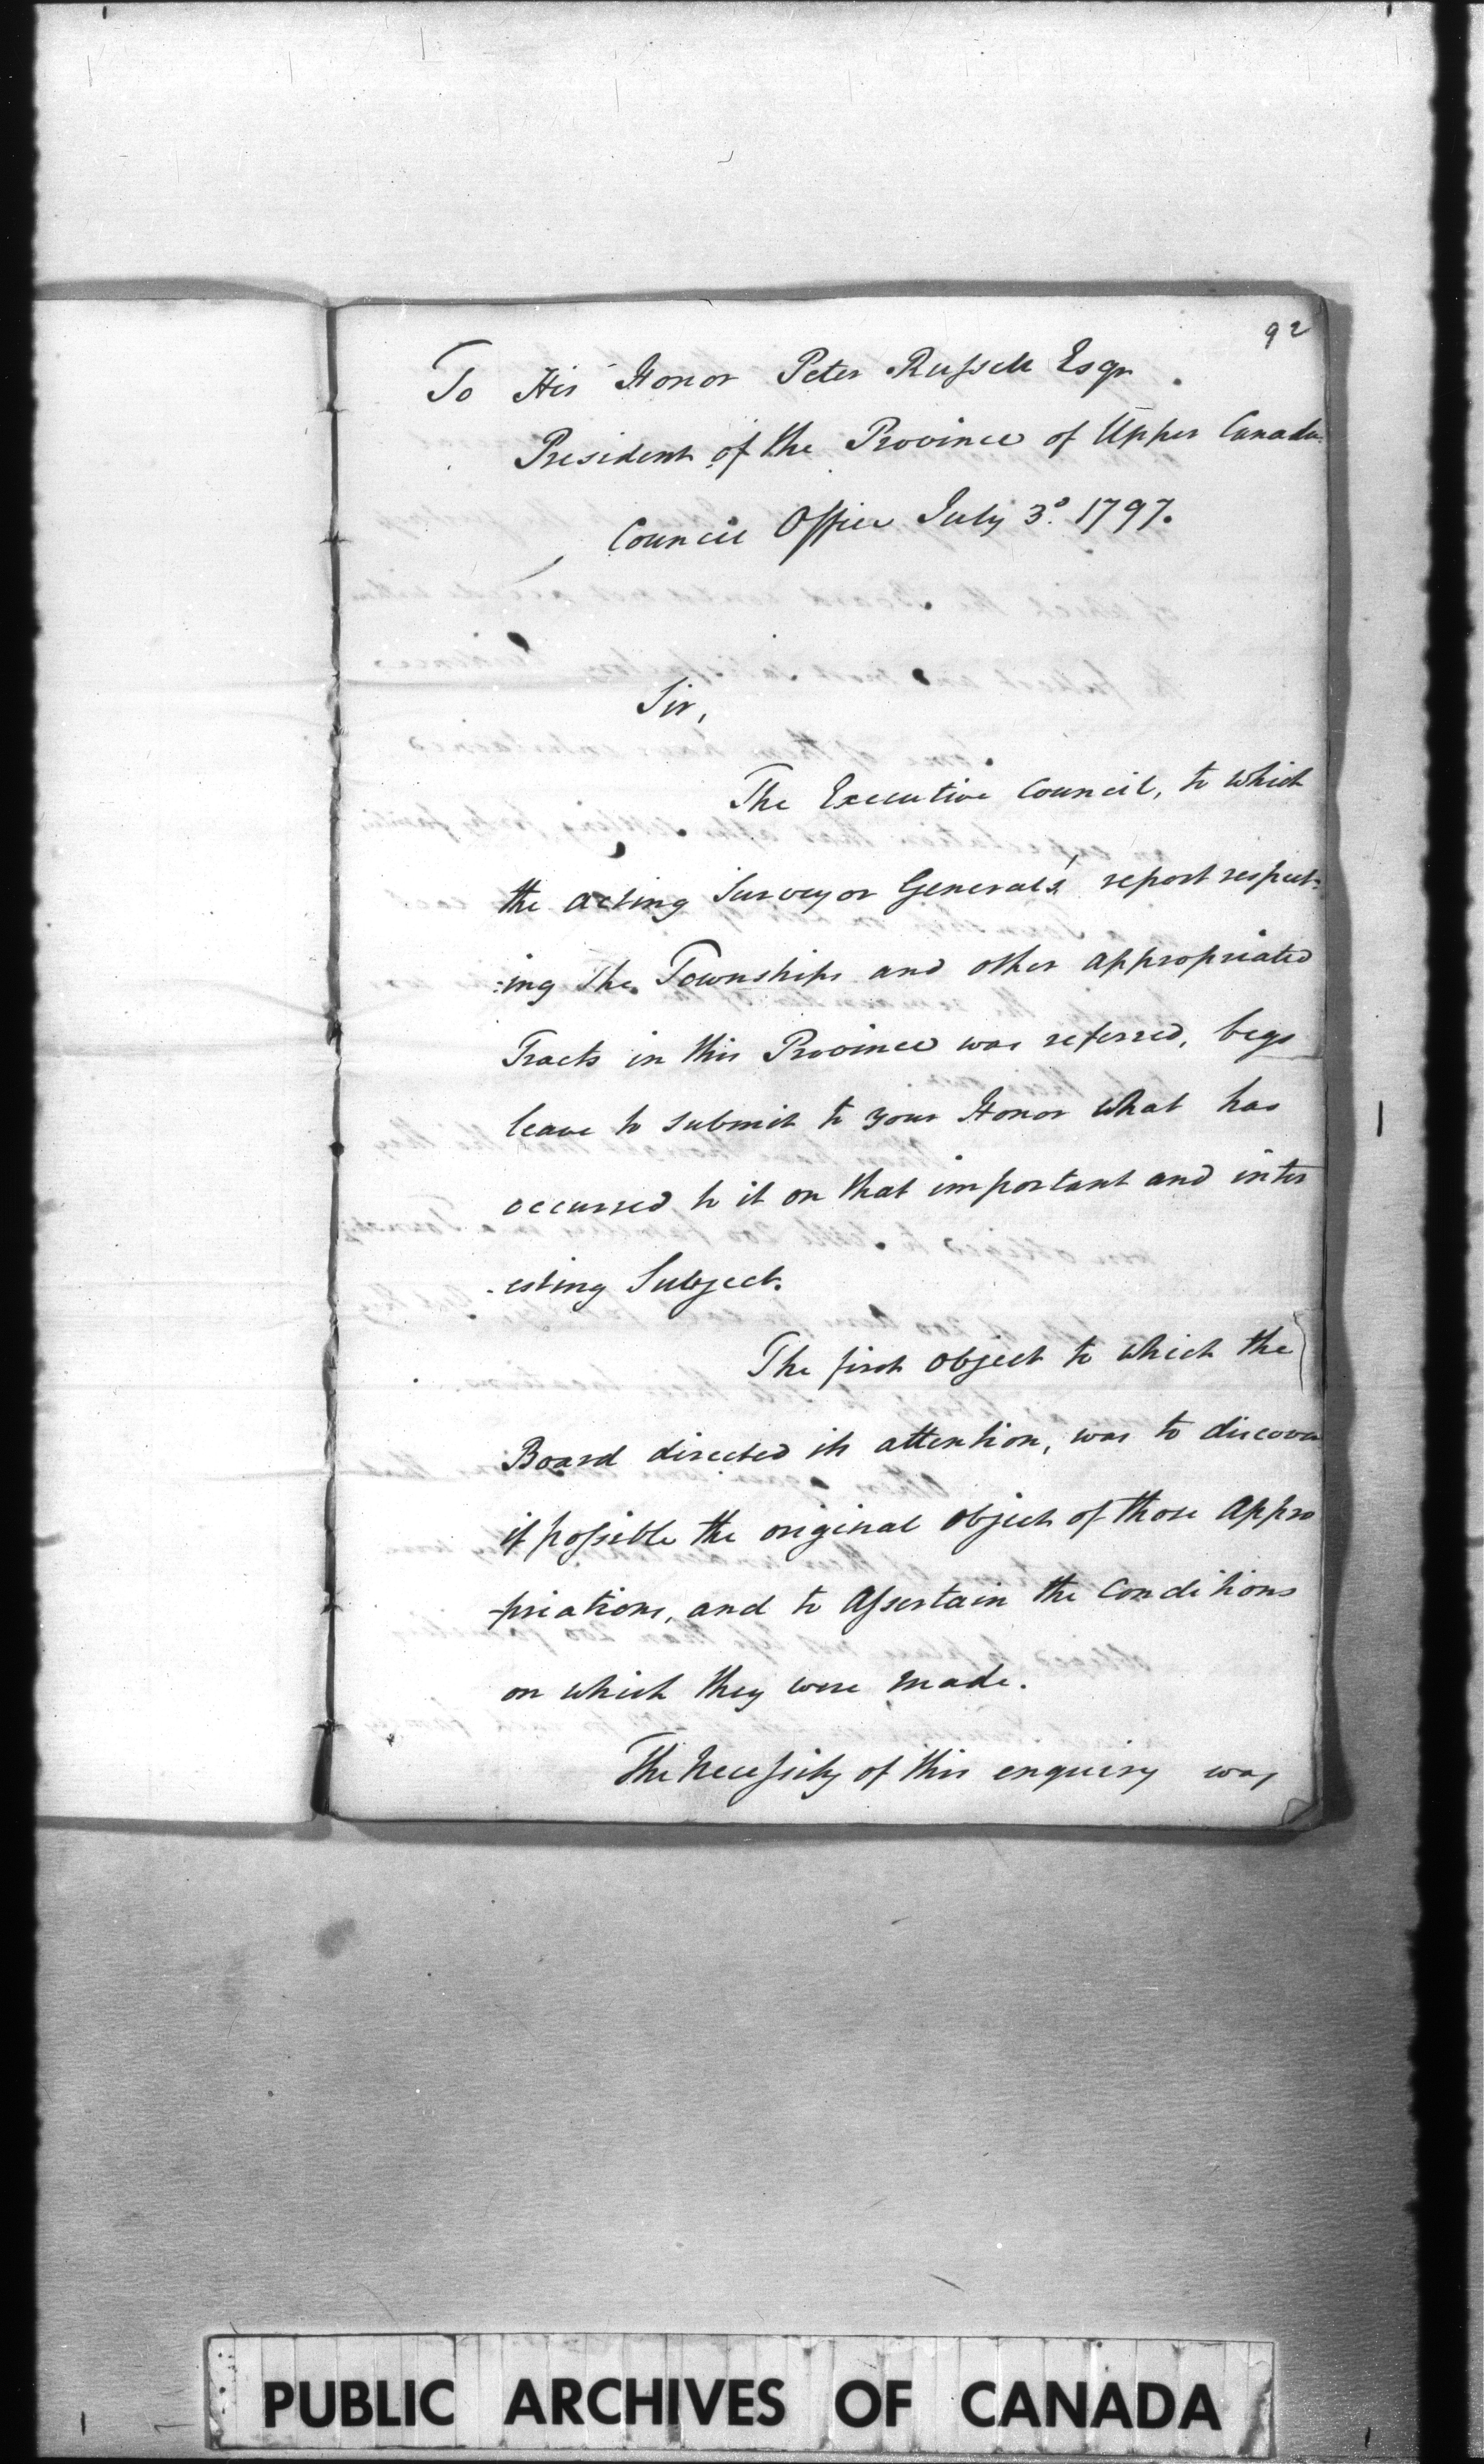 92
To His Honor Peter Russell Esqr.
President of the Province of Upper Canada.
Council Office July 3d. 1797.
Sir,
The Executive Council, to which
the acting Surveyor General's report respect:
:ing The Townships and other appropriated
Tracts in this Province was referred, begs
leave to submit to your Honor what has
occurred to it on that important and inter
-esting Subject.
The first object to which the
Board directed its attention, was to discover
if possible the original object of those appro
-priations, and to Assertain the Conditions
on which they were made.
The Necessity of this enquiry was
PUBLIC ARCHIVES OF CANADA